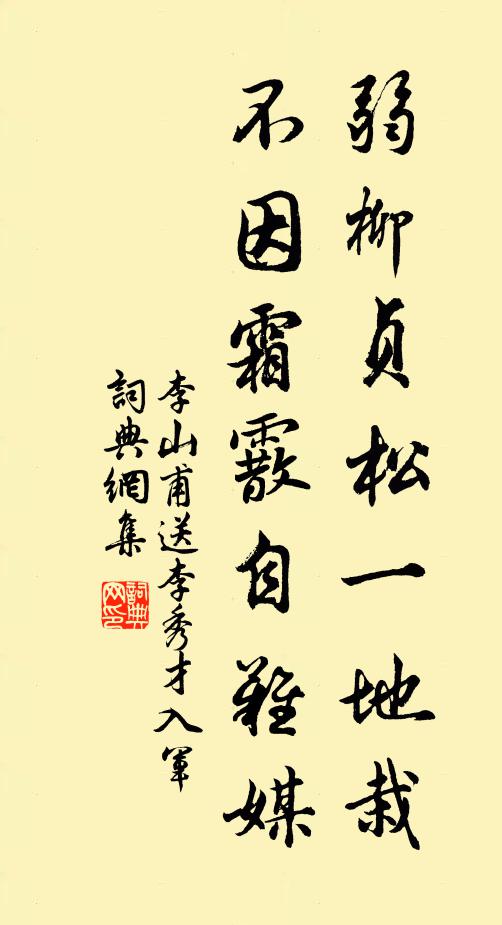 弱柳貞松一地栽
不因霜霰自難媒
李山甫送李秀才入軍
詞典網集
詞典网印